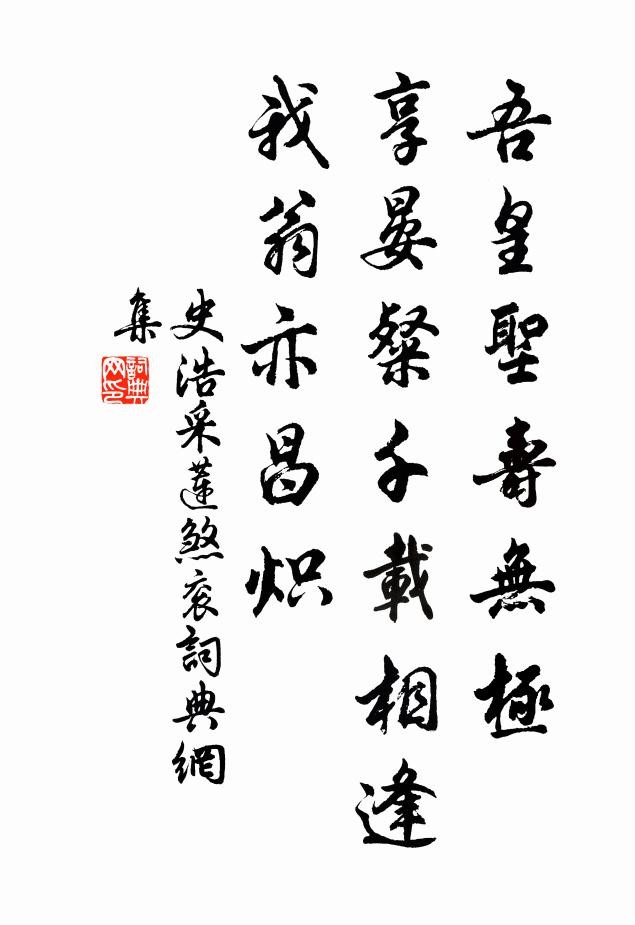 吾皇聖壽無極
享晏粲千載相逢
我翁亦昌炽
史浩采蓮煞衮詞典網
集
詞典网印